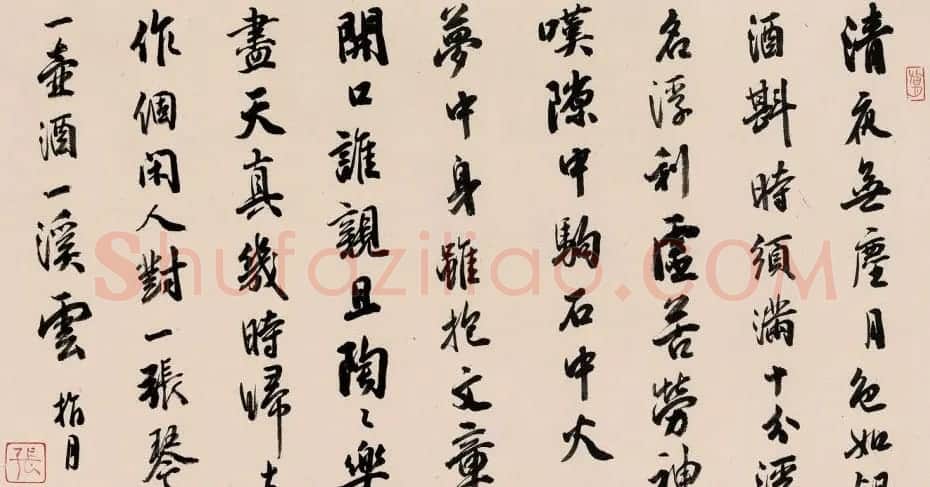 清夜無塵月色如
酒斟時須滿十分
名浮利虛苦勞神
嘆隙中駒石中火
夢中身雖抱文章
開口誰親且陶々樂
盡天真幾時歸
作個閑人對一張琴
一壺酒一溪雲
指月
張
Shufaziliao.COM